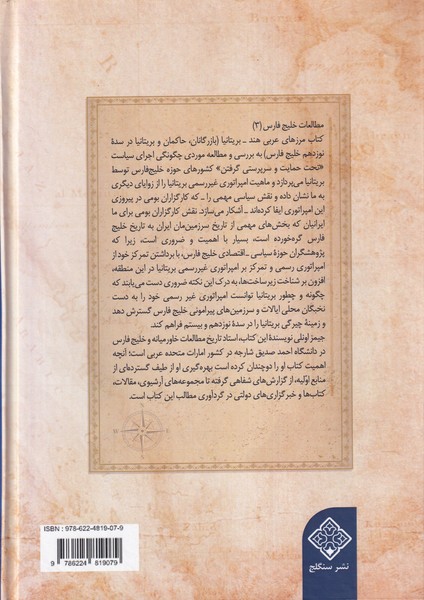 مطالعات خلیج فارس (۳)
کتاب مرزهای عربی هند ـ بریتانیا (بازرگانان، حاکمان و بریتانیا در سدۀ
نوزدهم خلیج فارس) به بررسی و مطالعه موردی چگونگی اجرای سیاست
«تحت حمایت و سرپرستی گرفتن» کشورهای حوزه خلیج‌فارس توسط
بریتانیا می‌پردازد و ماهیت امپراتوری غیررسمی بریتانیا را از زوایای دیگری
به ما نشان داده و نقش سیاسی مهمی را ـ که کارگزاران بومی در پیروزی
این امپراتوری ایفا کرده‌اند ـ آشکار می‌سازد. نقش کارگزاران بومی برای ما
ایرانیان که بخش‌های مهمی از تاریخ سرزمین‌مان ایران به تاریخ خلیج
فارس گره‌خورده است، بسیار با اهمیت و ضروری است، زیرا که
پژوهشگران حوزۀ سیاسی ـ اقتصادی خلیج فارس، با برداشتن تمرکز خود از
امپراتوری رسمی و تمرکز بر امپراتوری غیر رسمی بریتانیا در این منطقه،
افزون بر شناخت زیرساخت‌ها، به درک این نکته ضروری دست می‌یابند که
چگونه و چطور بریتانیا توانست امپراتوری غیر رسمی خود را به دست
نخبگان محلی ایالات و سرزمین‌های پیرامونی خلیج فارس گسترش دهد
و زمینۀ چیرگی بریتانیا را در سدۀ نوزدهم و بیستم فراهم کند.
جیمز اونلی نویسندۀ این کتاب، استاد تاریخ مطالعات خاورمیانه و خلیج فارس
در دانشگاه احمد صدیق شارجه در کشور امارات متحده عربی است؛ آنچه
اهمیت کتاب او را دوچندان کرده است بهره‌گیری او از طیف گسترده‌ای از
منابع اولیه، از گزارش‌های شفاهی گرفته تا مجموعه‌های آرشیوی، مقالات،
کتاب‌ها و خبرگزاری‌های دولتی در گردآوری مطالب این کتاب است.
ISBN : 978-622-4819-07-9
9 786224 819079
نشر سنگلج